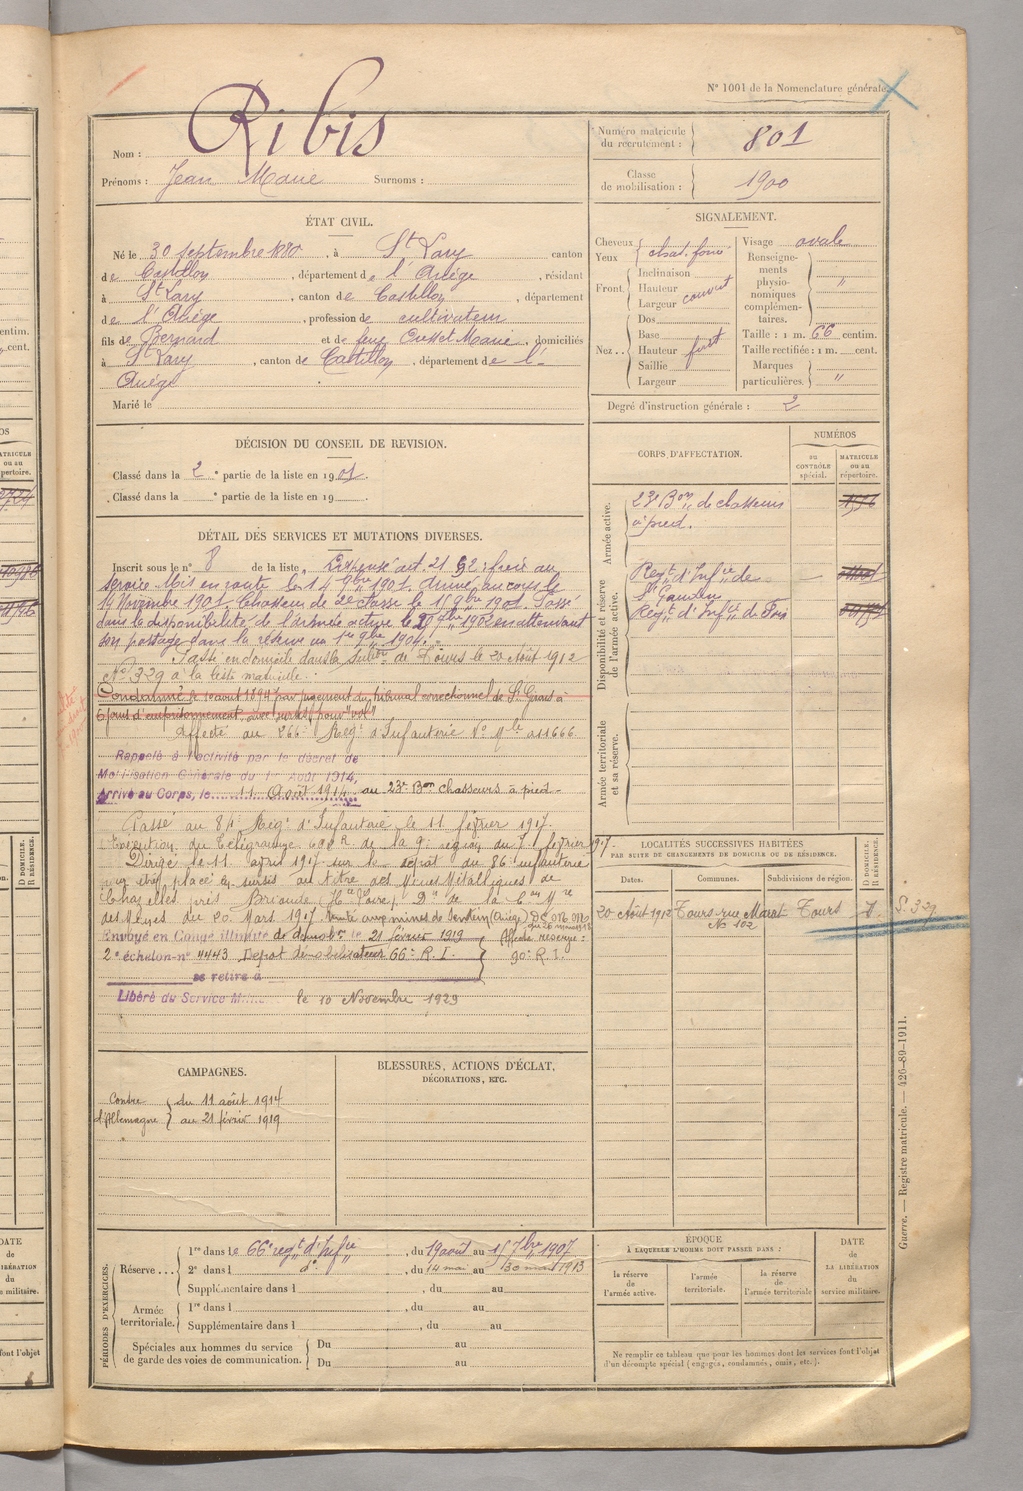 N° 1001 de la Nomenclature générale.
Ribis
Nom :
Prénoms : Jean Marie Surnoms :
Numéro matricule du recrutement : 801
Classe de mobilisation : 1900
ÉTAT CIVIL.
Né le 30 Septembre 1880, à St Lary canton
de Castillon, département de l'Ariège, résidant
à St Lary, canton de Castillon, département
de l'Ariège, profession de cultivateur
fils de Bernard et de feue Cusset Marie, domiciliés
à St Lary, canton de Castillon, département de l'
Ariège
Marié le
SIGNALEMENT.
Cheveux
Yeux
chat. foncé
Front. Inclinaison
Hauteur
Largeur
couvert
Nez.. Dos
Base
Hauteur
Saillie
Largeur
fort
Visage ovale
Renseignements physionomiques complémentaires. "
Taille : 1 m. 66 centim.
Taille rectifiée : 1 m. cent.
Marques particulières. "
Degré d'instruction générale : 2
DÉCISION DU CONSEIL DE REVISION.
Classé dans la 2e partie de la liste en 1901.
Classé dans la e partie de la liste en 19
CORPS D'AFFECTATION.
NUMÉROS
au CONTRÔLE spécial.
MATRICULE ou au répertoire.
Armée active.
23e Bon de chasseurs
à pied.
Disponibilité et réserve de l'armée active.
Regt d'Infie de
St Gaudens
Regt d'Infie de
Armée territoriale et sa réserve.
DÉTAIL DES SERVICES ET MUTATIONS DIVERSES.
Inscrit sous le n° 8 de la liste, Dispensé art. 21 § 2 : frère au
service. Mis en route le 14 9bre 1901. Arrivé au corps le
14 Novembre 1901. Chasseur de 2e classe le 1901. Passé
dans la disponibilité de l'armée active le 1902 en attendant
son passage dans la réserve au 1er 9bre 1904.
Passé en domicile dans la subion de Tours le 20 Août 1912
N° 329 à la liste matricule.
Condamné le 10 août 1894 par jugement du tribunal correctionnel de St Girons à
6 jours d'emprisonnement, avec sursis, pour "vol"
Affecté au 266e Régt d'Infanterie N° Mle 011666
Rappelé à l'activité par le décret de
Mobilisation Générale du 1er Août 1914,
Arrivé au Corps, le 11 Août 1914 au 23e Bon Chasseurs à pied -
Passé au Régt d'Infanterie le 11 février 1917.
Exécution du Télégramme de la 9e région du 7 février 1917.
Dirigé le 11 avril 1917 sur le dépôt du 86e infanterie
pour être placé en sursis au titre des Mines Métalliques de
Chazelles près Brioude (Hte Loire) Don de la
des Mines du 20 Mars 1917 aux mines de Sentein (Ariège)
Envoyé en Congé illimité de démobon le 21 février 1919
2e échelon n° 4443 Dépôt démobilisateur 66e R. I.
se retire à
Affecté réserve :
90e R. I.
Libéré du Service le 10 Novembre 1929
LOCALITÉS SUCCESSIVES HABITÉES
PAR SUITE DE CHANGEMENTS DE DOMICILE OU DE RÉSIDENCE.
Dates. Communes. Subdivisions de région. D DOMICILE. R RÉSIDENCE.
20 Août 1912 Tours rue Marat Tours D. S. 329
N° 102
CAMPAGNES.
Contre l'Allemagne
du 11 août 1914
au 21 février 1919
BLESSURES, ACTIONS D'ÉCLAT,
DÉCORATIONS, ETC.
PÉRIODES D'EXERCICES.
Réserve... 1re dans le 66e regt d'Infie, du 19 août au 15 7bre 1907
2e dans l d°, du 14 mai au 30 mai 1913
Supplémentaire dans l , du au
Armée territoriale. 1re dans l , du au
Supplémentaire dans l , du au
Spéciales aux hommes du service de garde des voies de communication. Du au
Du au
ÉPOQUE
À LAQUELLE L'HOMME DOIT PASSER DANS :
la réserve de l'armée active.
l'armée territoriale.
la réserve de l'armée territoriale
DATE de LA LIBÉRATION du service militaire.
Ne remplir ce tableau que pour les hommes dont les services font l'objet
d'un décompte spécial (engagés, condamnés, omis, etc.).
Guerre. — Registre matricule. — 426-89-1911.